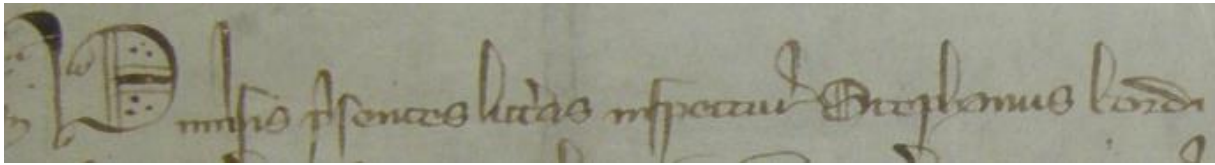 Universis presentes litteras inspecturis Stephanus